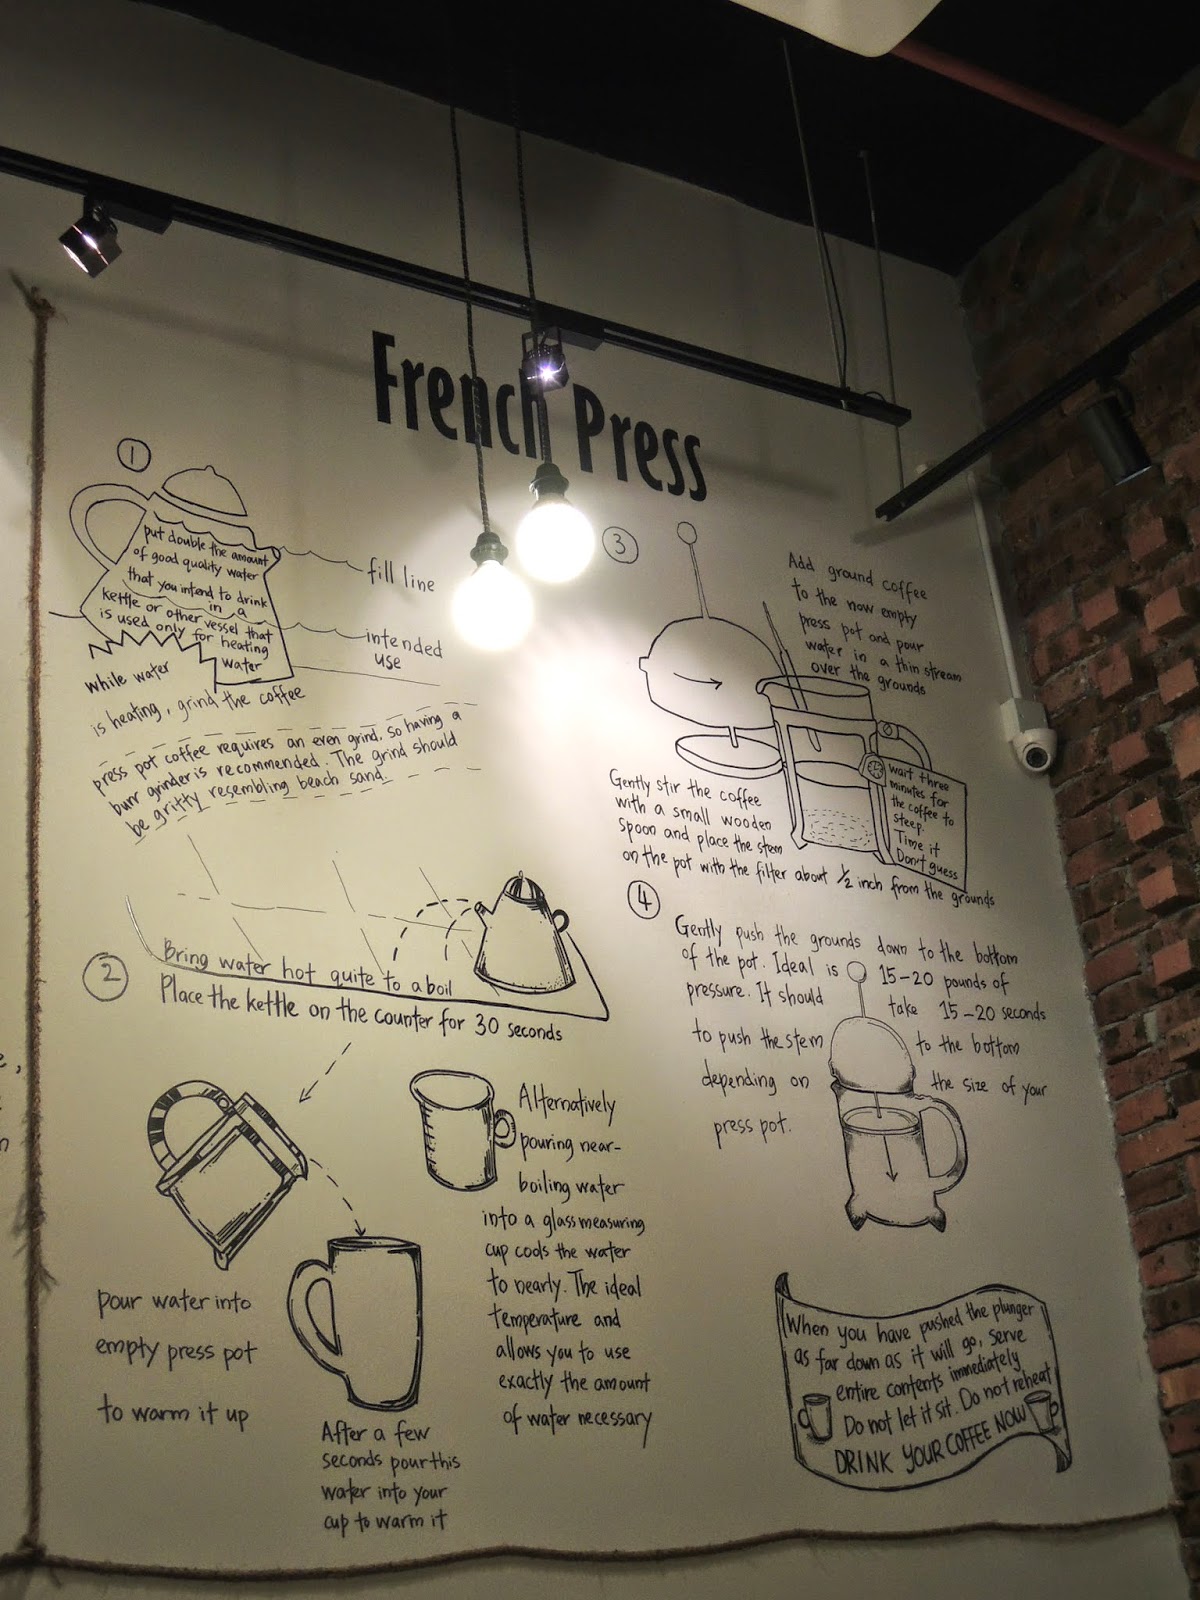 French Press
1
put double the amount
of good quality water
that you intend to drink
in a
kettle or other vessel that
is used only for heating
water
fill line
intended
use
while water
is heating, grind the coffee
press pot coffee requires an even grind, so having a
burr grinder is recommended. The grind should
be gritty resembling beach sand.
2
Bring water hot quite to a boil
Place the kettle on the counter for 30 seconds
pour water into
empty press pot
to warm it up
After a few
seconds pour this
water into your
cup to warm it
Alternatively
pouring near-
boiling water
into a glass measuring
cup cools the water
to nearly. The ideal
temperature and
allows you to use
exactly the amount
of water necessary
3
Add ground coffee
to the now empty
press pot and pour
water in a thin stream
over the grounds
Gently stir the coffee
with a small wooden
spoon and place the stem
on the pot with the filter about 1/2 inch from the grounds
wait three
minutes for
the coffee to
steep.
Time it
Don't guess
4
Gently push the grounds down to the bottom
of the pot. Ideal is 15-20 pounds of
pressure. It should take 15-20 seconds
to push the stem to the bottom
depending on the size of your
press pot.
When you have pushed the plunger
as far down as it will go, serve
entire contents immediately
Do not let it sit. Do not reheat
DRINK YOUR COFFEE NOW